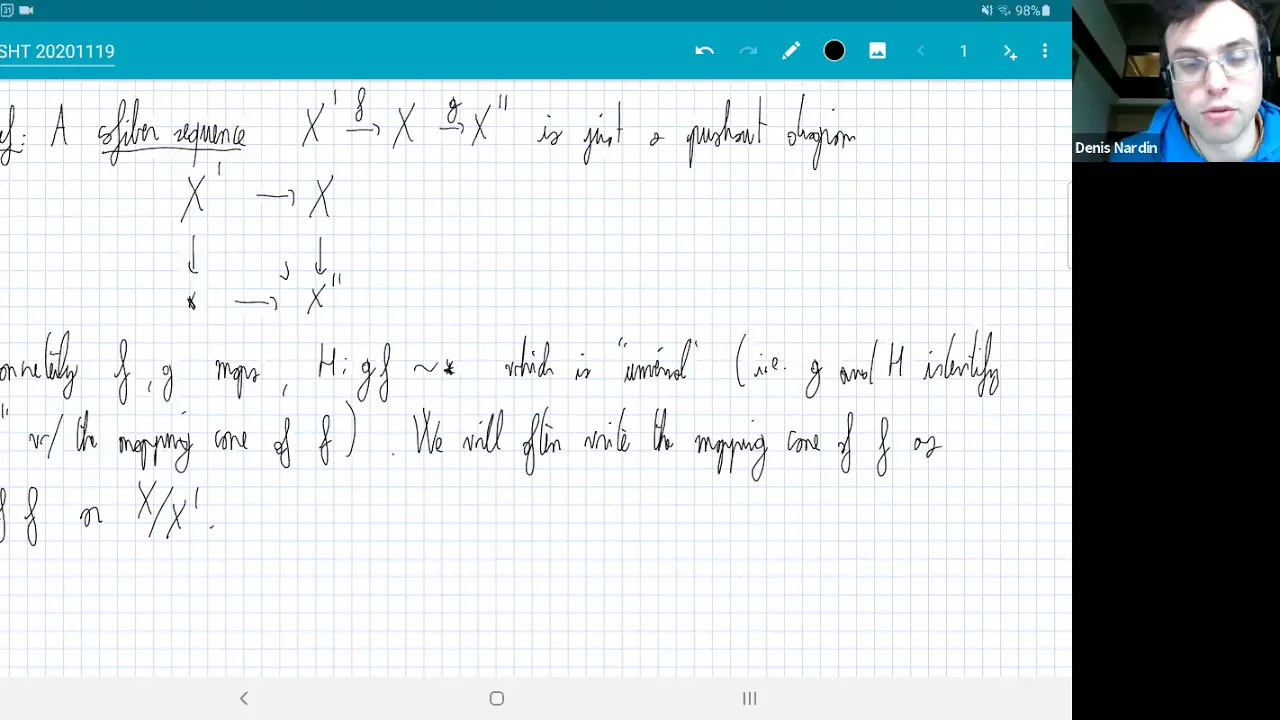 31
98%
SHT 20201119
1
ef: A cofiber sequence X' f→ X g→ X'' is just a pushout diagram
X' → X
↓ ↓
* → X''
oncretely f, g maps, H: gf ~ * which is "universal" (i.e. g and H identify
'' w/ the mapping cone of f). We will often write the mapping cone of f as
f f or X/X'.
Denis Nardin